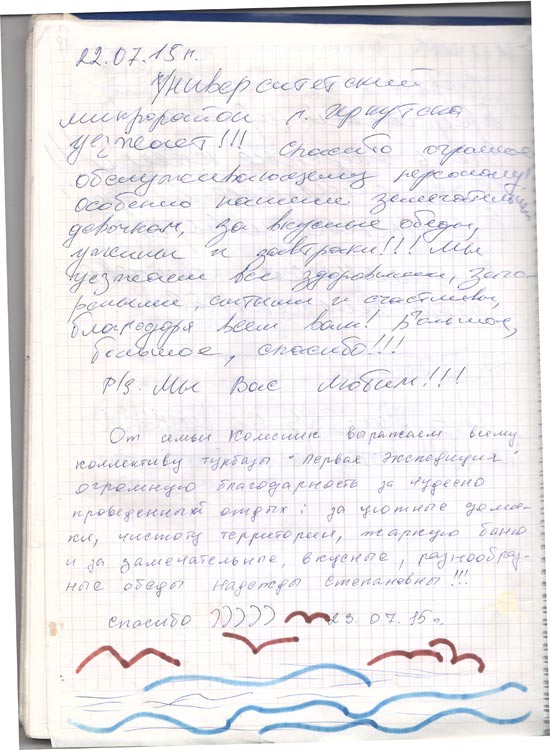 22.07.15 г.
Университетский
микрорайон г. Иркутска
уезжает!!! Спасибо огромное
обслуживающему персоналу!
особенно нашим замечательным
девочкам, за вкусные обеды,
ужины и завтраки!!! Мы
уезжаем все здоровыми, заго
релыми, сытыми и счастливы,
благодаря всем вам! Большое,
большое, спасибо!!!
P/S. Мы Вас любим!!!
От семьи Колесник выражаем всему
коллективу турбазы "Первая Экспедиция"
огромную благодарность за чудесно
проведенный отдых: за уютные доми-
ки, чистоту территории, жаркую баню
и за замечательные, вкусные, разнообраз-
ные обеды Надежды Степановны!!!
Спасибо ))))) 23.07.15 г.